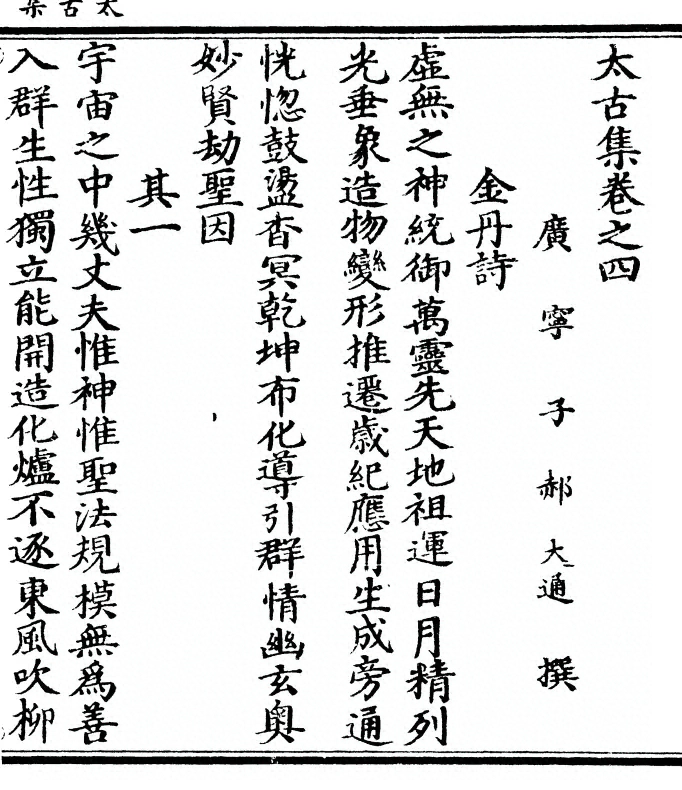 太古集
太古集卷之四
廣寧子郝大通撰
金丹詩
虛無之神統御萬靈先天地祖運日月精列
光垂象造物變形推遷歲紀應用生成旁通
恍惚鼓盪杳冥乾坤布化導引群情幽玄奥
妙賢劫聖因
其一
宇宙之中幾丈夫惟神惟聖法規模無爲善
入群生性獨立能開造化爐不逐東風吹柳